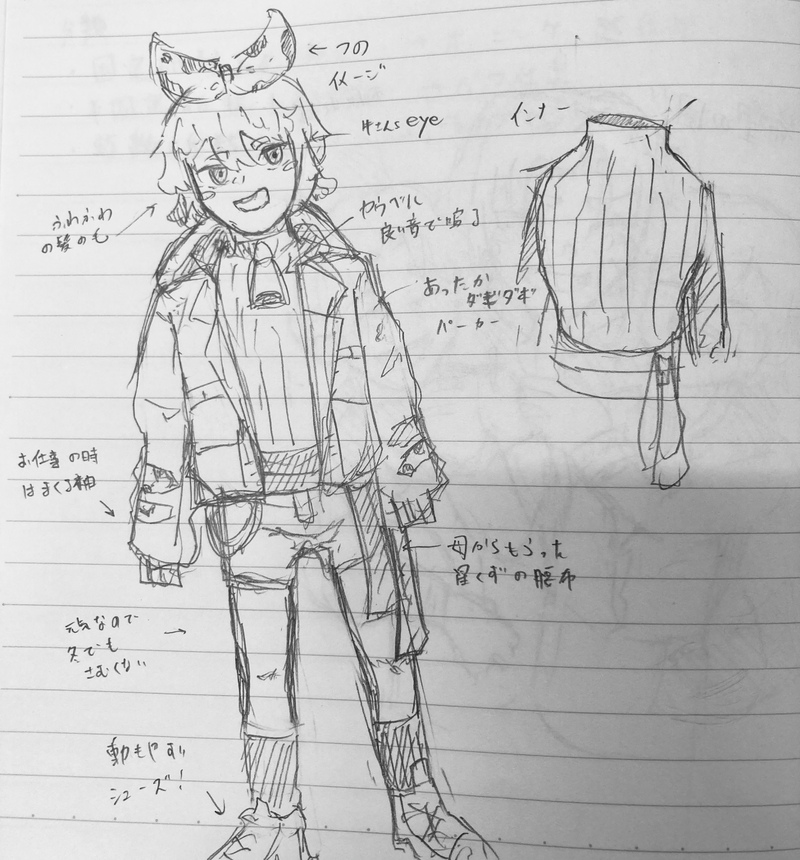 つの
イメージ
牛さんs eye
インナー
ふわふわ
の髪のも
カウベル
良い音で鳴る
あったか
パーカー
お仕事の時
はまくる袖
母からもらった
星くずの腰布
元気なので
冬でも
さむくない
動きやすい
シューズ!